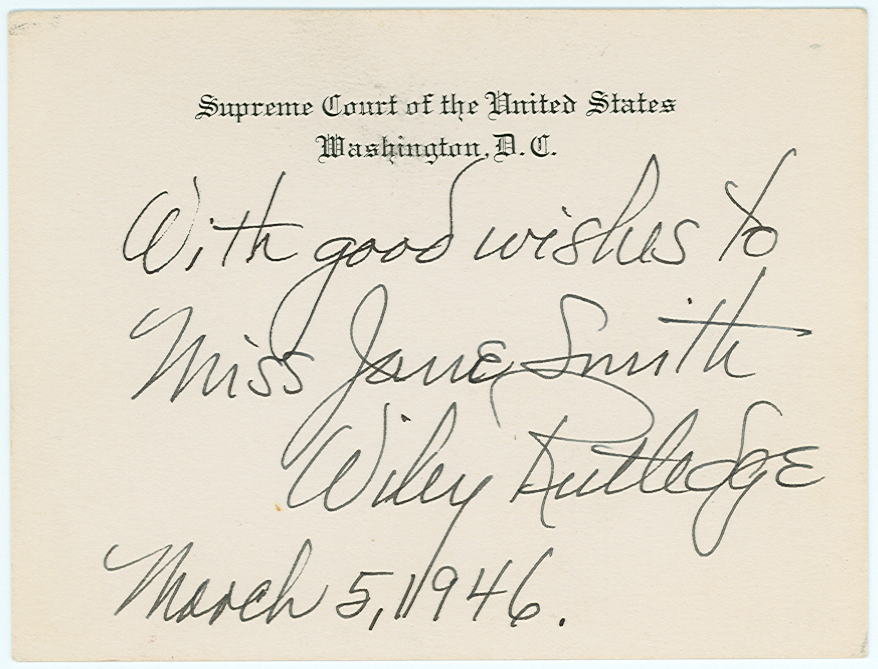 Supreme Court of the United States
Washington, D.C.
With good wishes to
Miss Jane Smith
Wiley Rutledge
March 5, 1946.